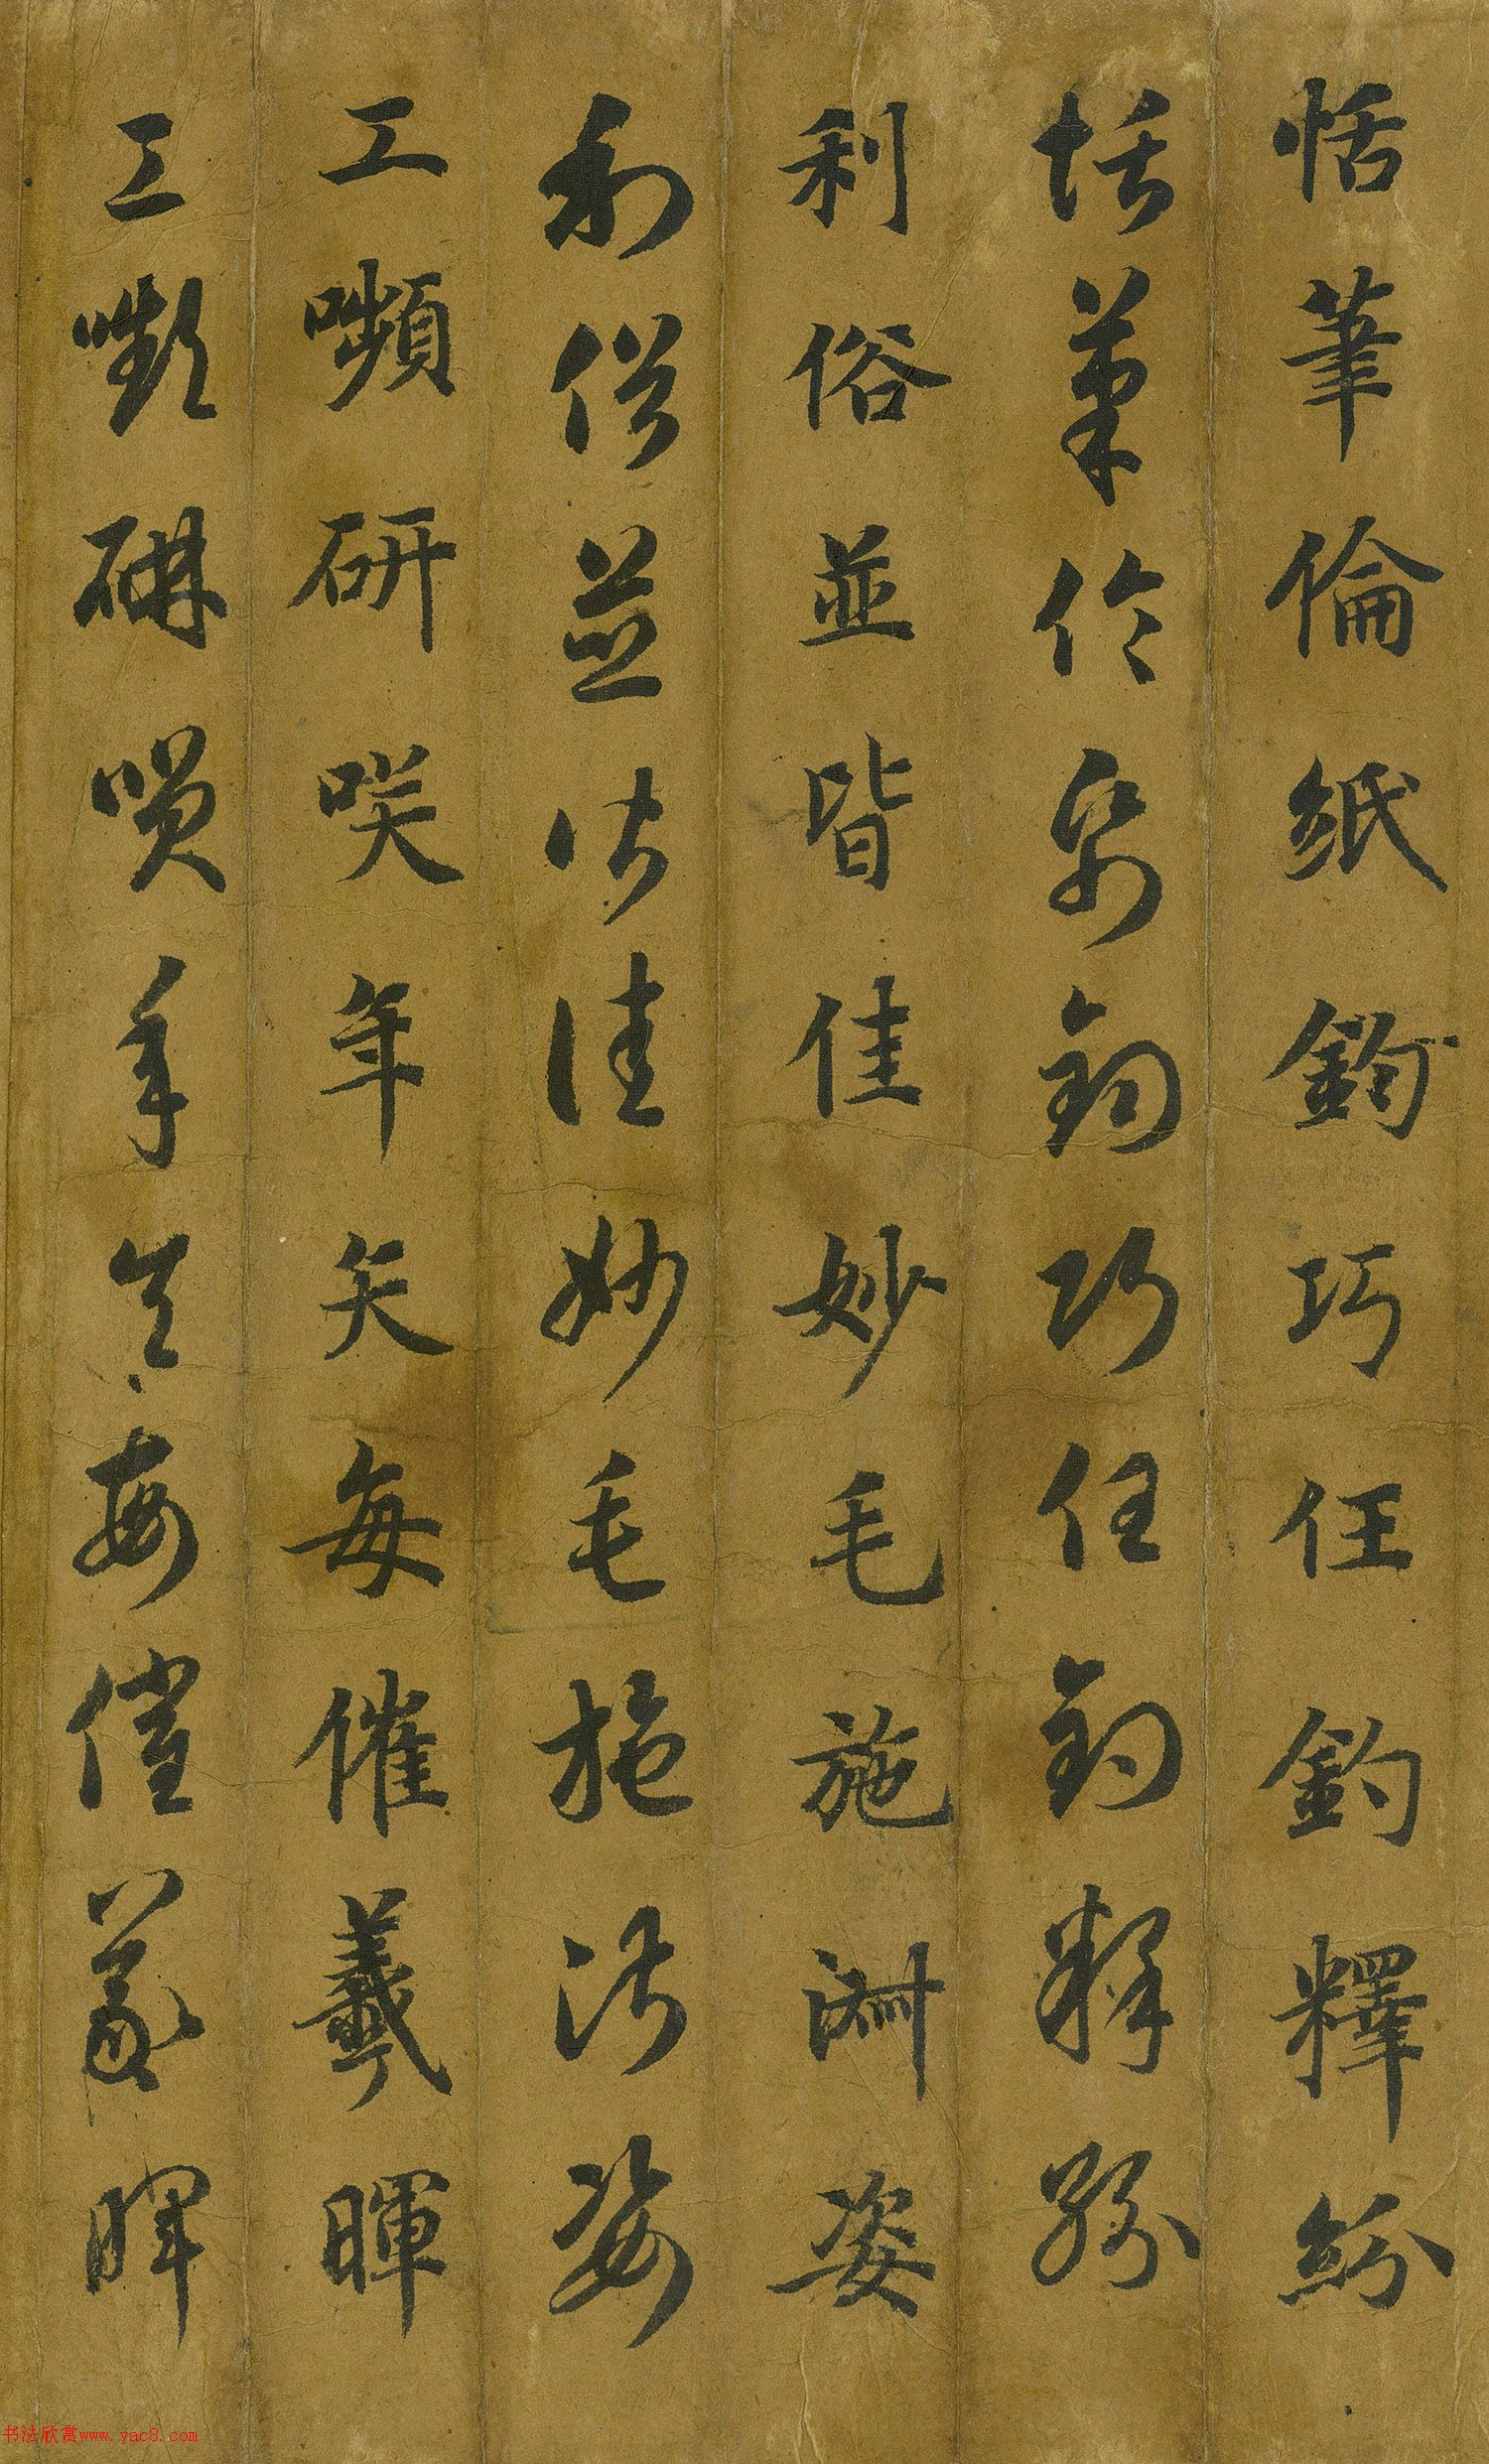 恬筆倫紙鈞巧任釣釋紛
恬筆倫紙鈞巧任釣釋紛
利俗並皆佳妙毛施淑姿
利俗並皆佳妙毛施淑姿
工嚬研咲年矢每催羲暉
工嚬研咲年矢每催羲暉
书法欣赏www.yac8.com